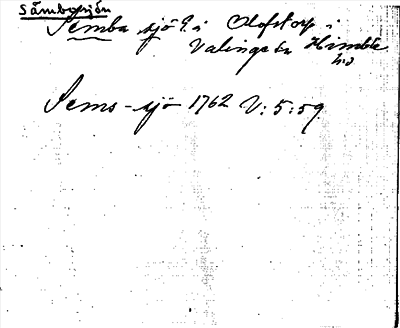 Sämbysjön
Semba sjö i Olofstorp i
Valinge sn Himble
hd
Sems-sjö 1762 V: 5:59